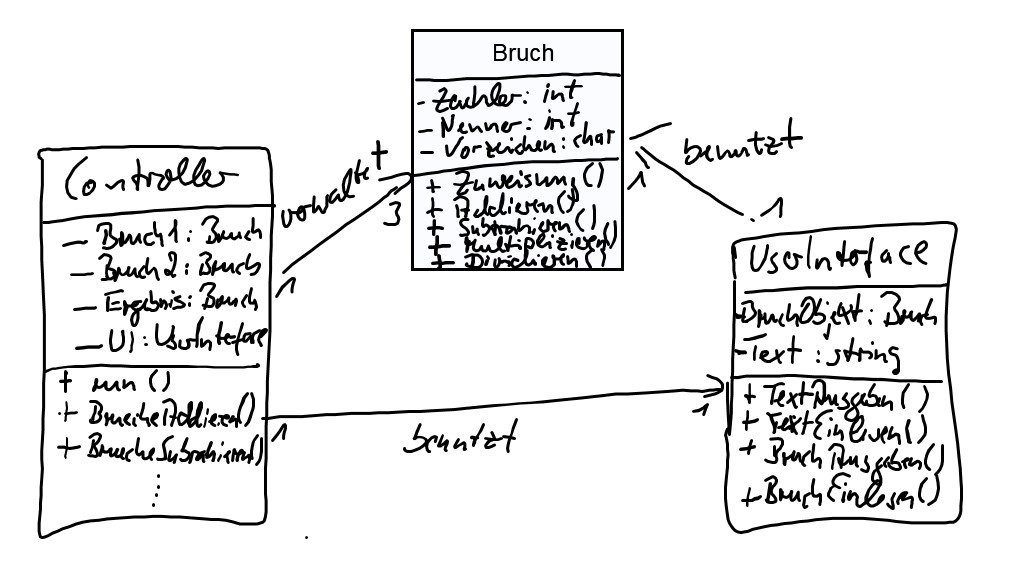 Bruch
- Zaehler: int
- Nenner: int
- Vorzeichen: char
+ Zuweisung()
+ Addieren()
+ Subtrahieren()
+ Multiplizieren()
+ Dividieren()
verwaltet
3
1
benutzt
1
1
Controller
- Bruch1: Bruch
- Bruch2: Bruch
- Ergebnis: Bruch
- UI: UserInterface
+ run()
+ BruecheAddieren()
+ BruecheSubtrahieren()
UserInterface
- BruchObjekt: Bruch
- Text: string
+ TextAusgeben()
+ TextEinlesen()
+ BruchAusgeben()
+ BruchEinlesen()
1
benutzt
1